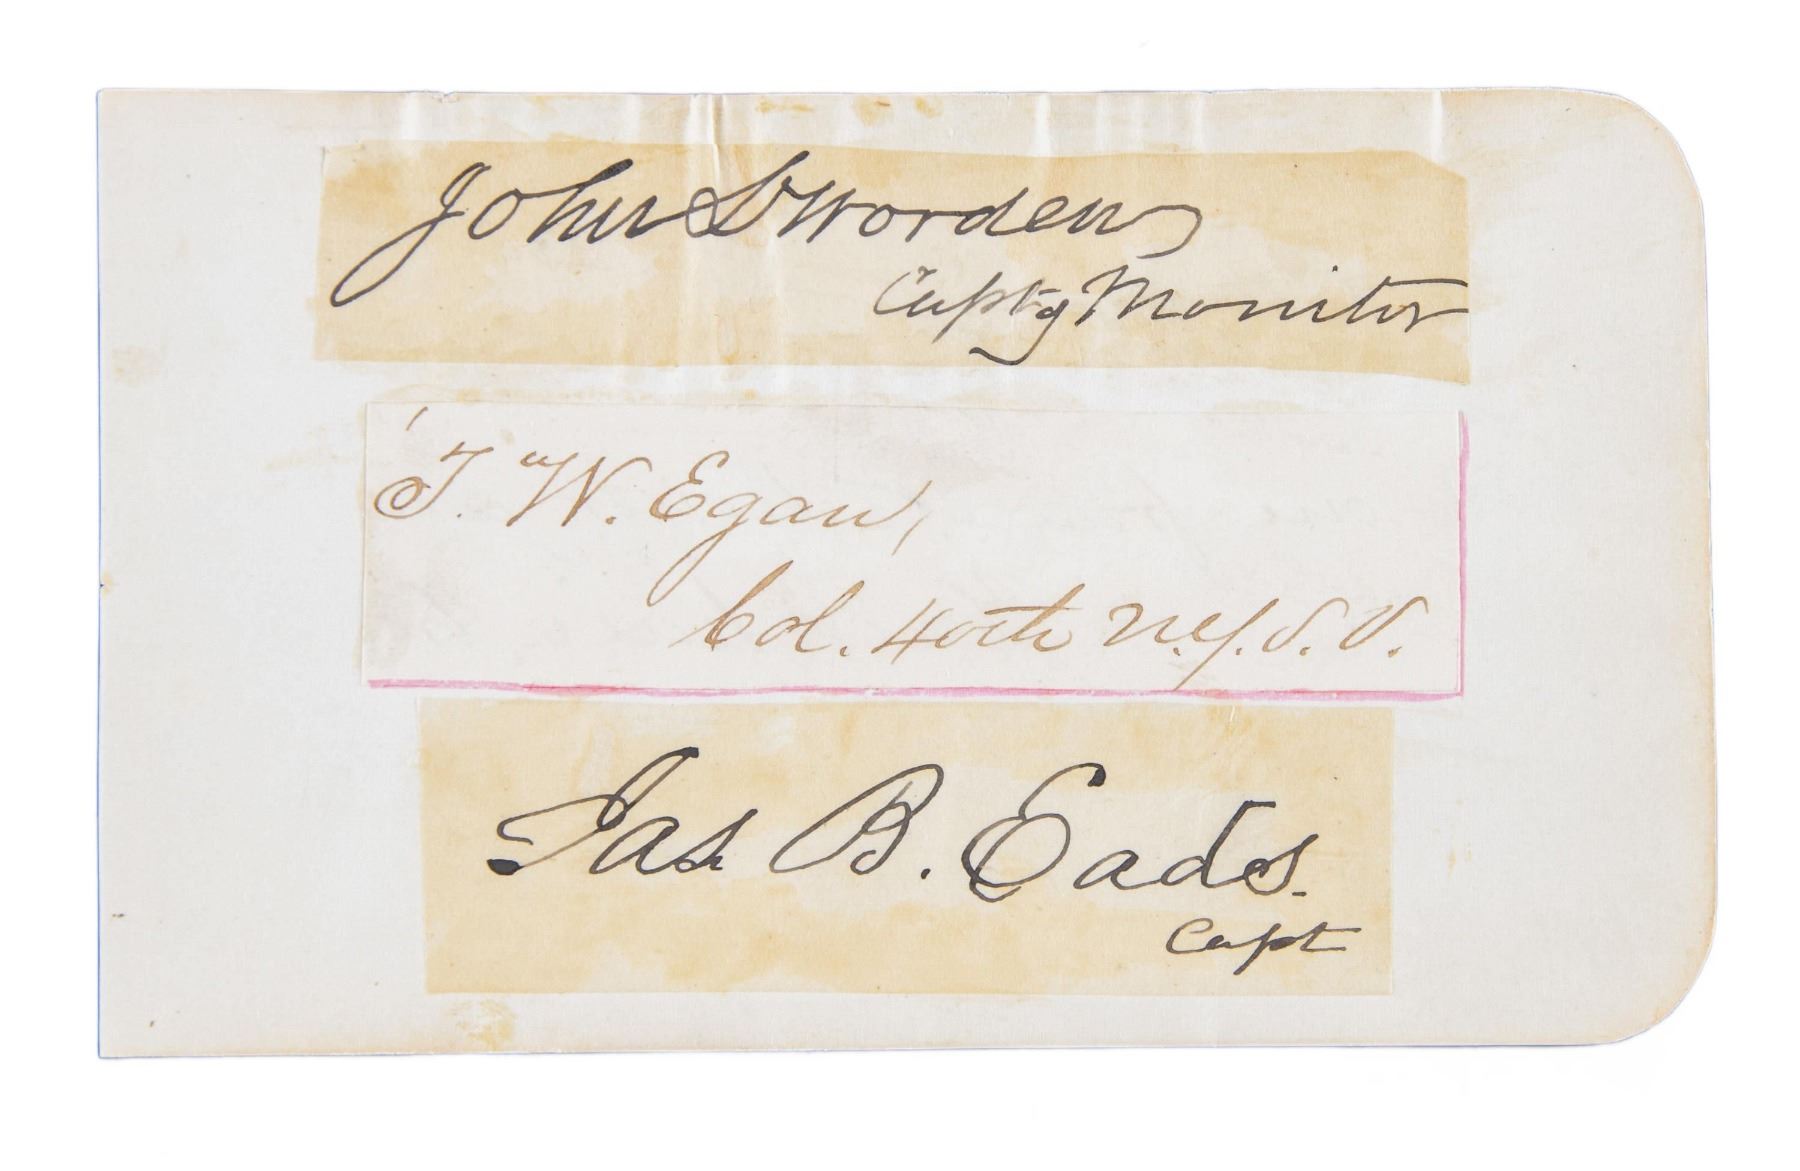 John L Worden
Capt of Monitor
T. W. Egan,
Col. 40th N.Y.S.V.
Jas B. Eads.
Capt